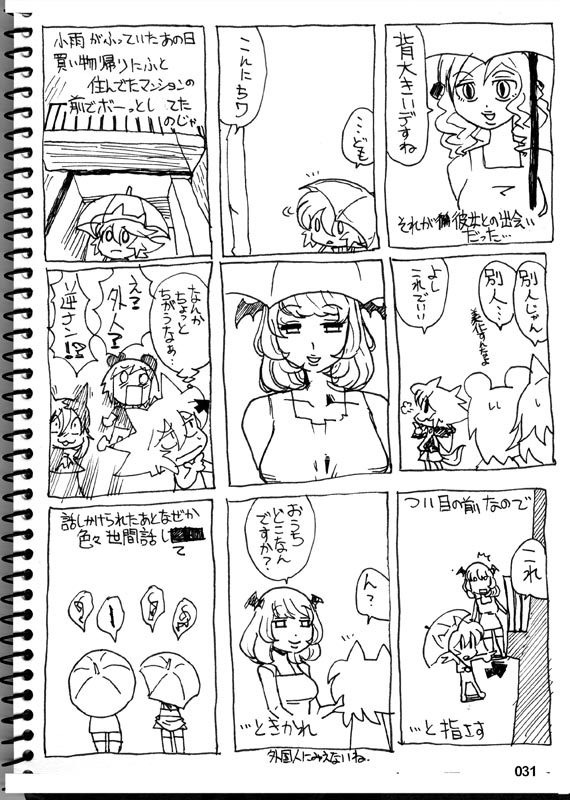 小雨がふっていたあの日
買い物帰りにふと
住んでたマンションの
前でボーっとしてた
のじゃ
こんにちワ
…ども
背大きいデすね
それが彼女との出会い
だった…
なんか
ちょっと
ちがうなぁ…
え?
外人?
逆ナン!?
別人じゃん
別人…
美化すんなよ
よし
これでいい
話しかけられたあとなぜか
色々世間話し
て
おうち
どこなん
ですか?
ん?
…ときかれ
外国人にみえないね.
つい目の前なので
これ
…と指さす
031